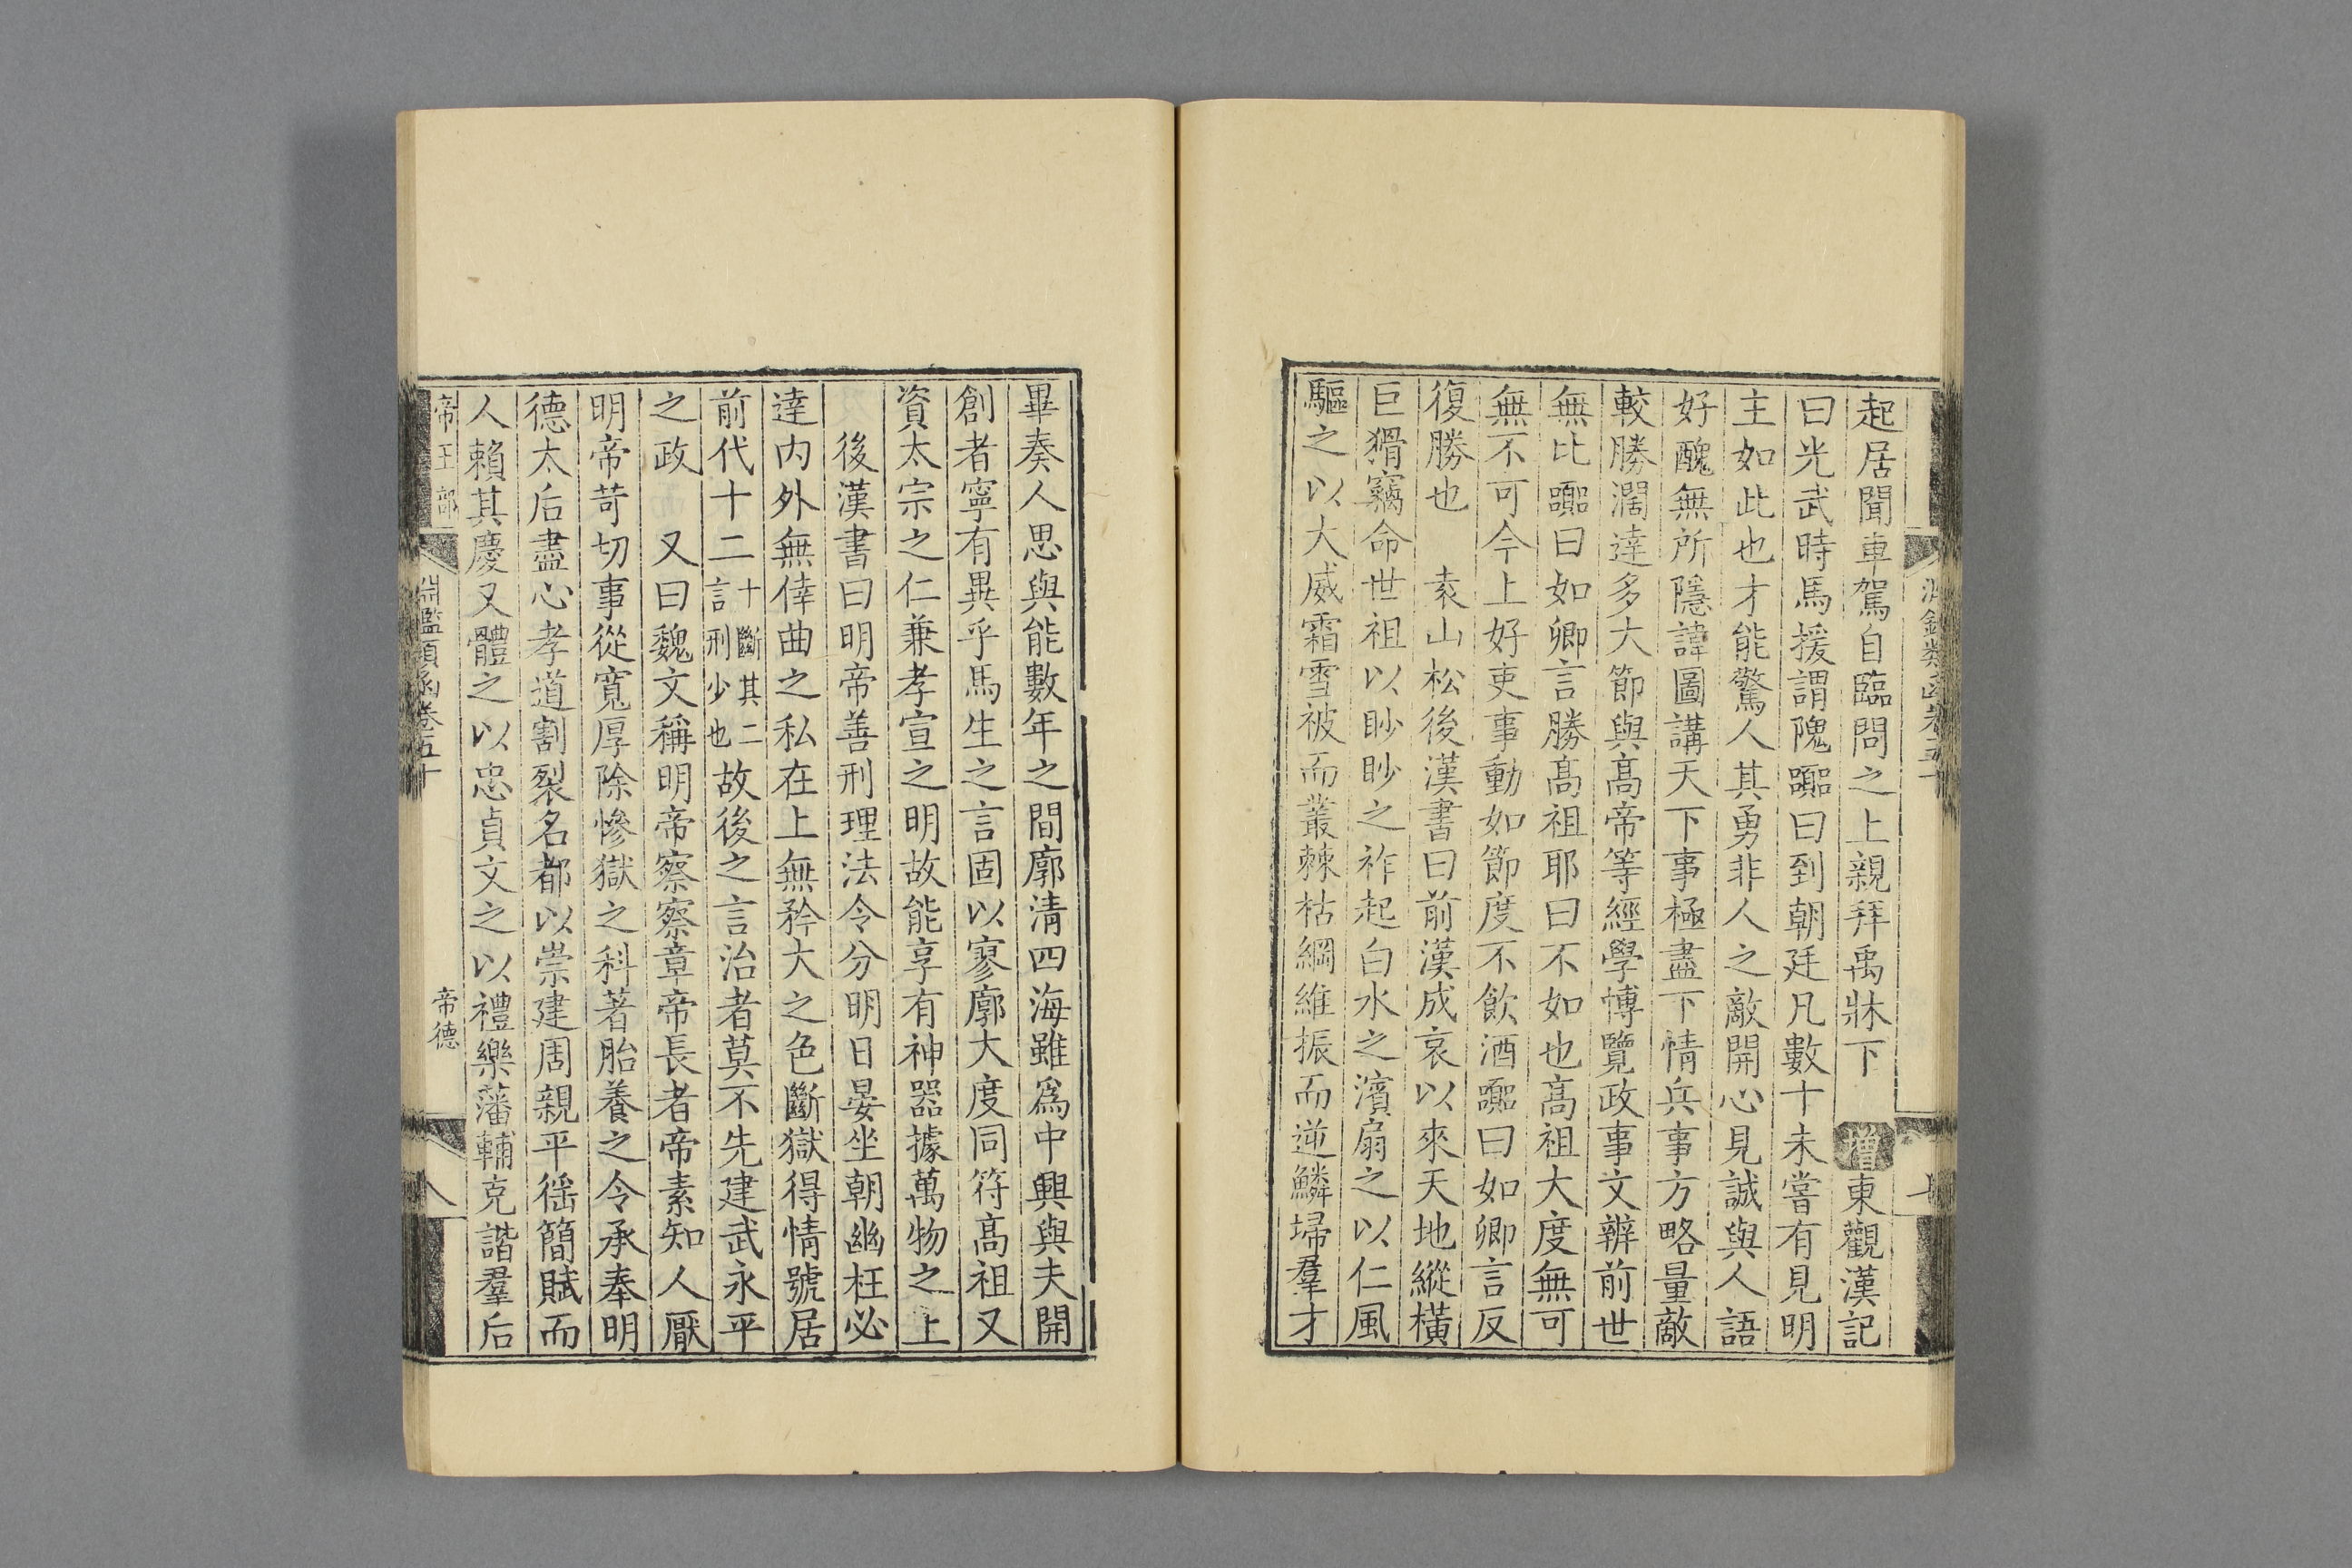 起居聞車駕自臨問之上親拜禹牀下 增 東觀漢記
曰光武時馬援謂隗囂曰到朝廷凡數十未嘗有見明
主如此也才能驚人其勇非人之敵開心見誠與人語
好醜無所隱諱圖講天下事極盡下情兵事方略量敵
較勝濶達多大節與髙帝等經學博覽政事文辨前世
無比囂曰如卿言勝髙祖耶曰不如也髙祖大度無可
無不可今上好吏事動如節度不飲酒囂曰如卿言反
復勝也 袁山松後漢書曰前漢成哀以來天地縱橫
巨猾竊命世祖以眇眇之祚起白水之濱扇之以仁風
驅之以大威霜雪被而叢棘枯綱維振而逆鱗埽羣才
畢奏人思與能數年之間廓清四海雖為中興與夫開
創者寧有異乎馬生之言固以寥廓大度同符髙祖又
資太宗之仁兼孝宣之明故能享有神器據萬物之上
後漢書曰明帝善刑理法令分明日晏坐朝幽枉必
達内外無倖曲之私在上無矜大之色斷獄得情號居
前代十二十斷其二言刑少也故後之言治者莫不先建武永平
之政 又曰魏文稱明帝察察章帝長者帝素知人厭
明帝苛切事從寬厚除慘獄之科著胎養之令承奉明
德太后盡心孝道割裂名都以崇建周親平徭簡賦而
人賴其慶又體之以忠貞文之以禮樂藩輔克諧羣后
帝王部 淵鑑類函卷五十 帝德 八